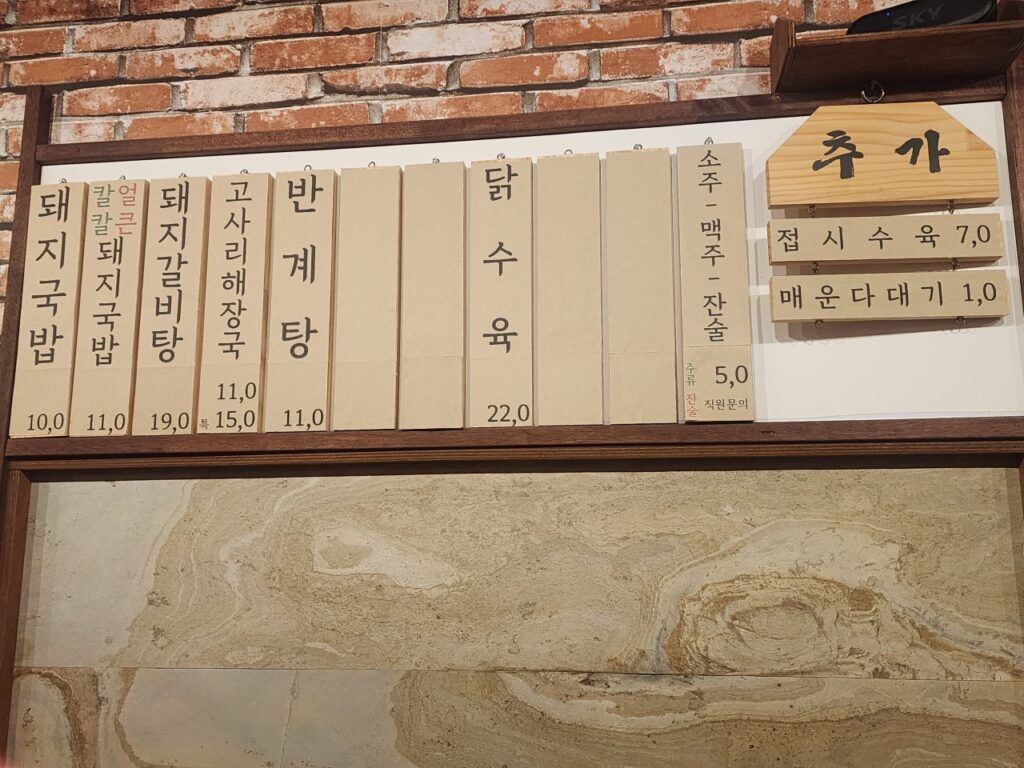 SKY
돼지국밥
10,0
칼칼 얼큰
돼지국밥
11,0
돼지갈비탕
19,0
고사리해장국
11,0
특 15,0
반계탕
11,0
닭수육
22,0
소주-맥주-잔술
주류 5,0
잔술 직원문의
추가
접시수육 7,0
매운다대기 1,0